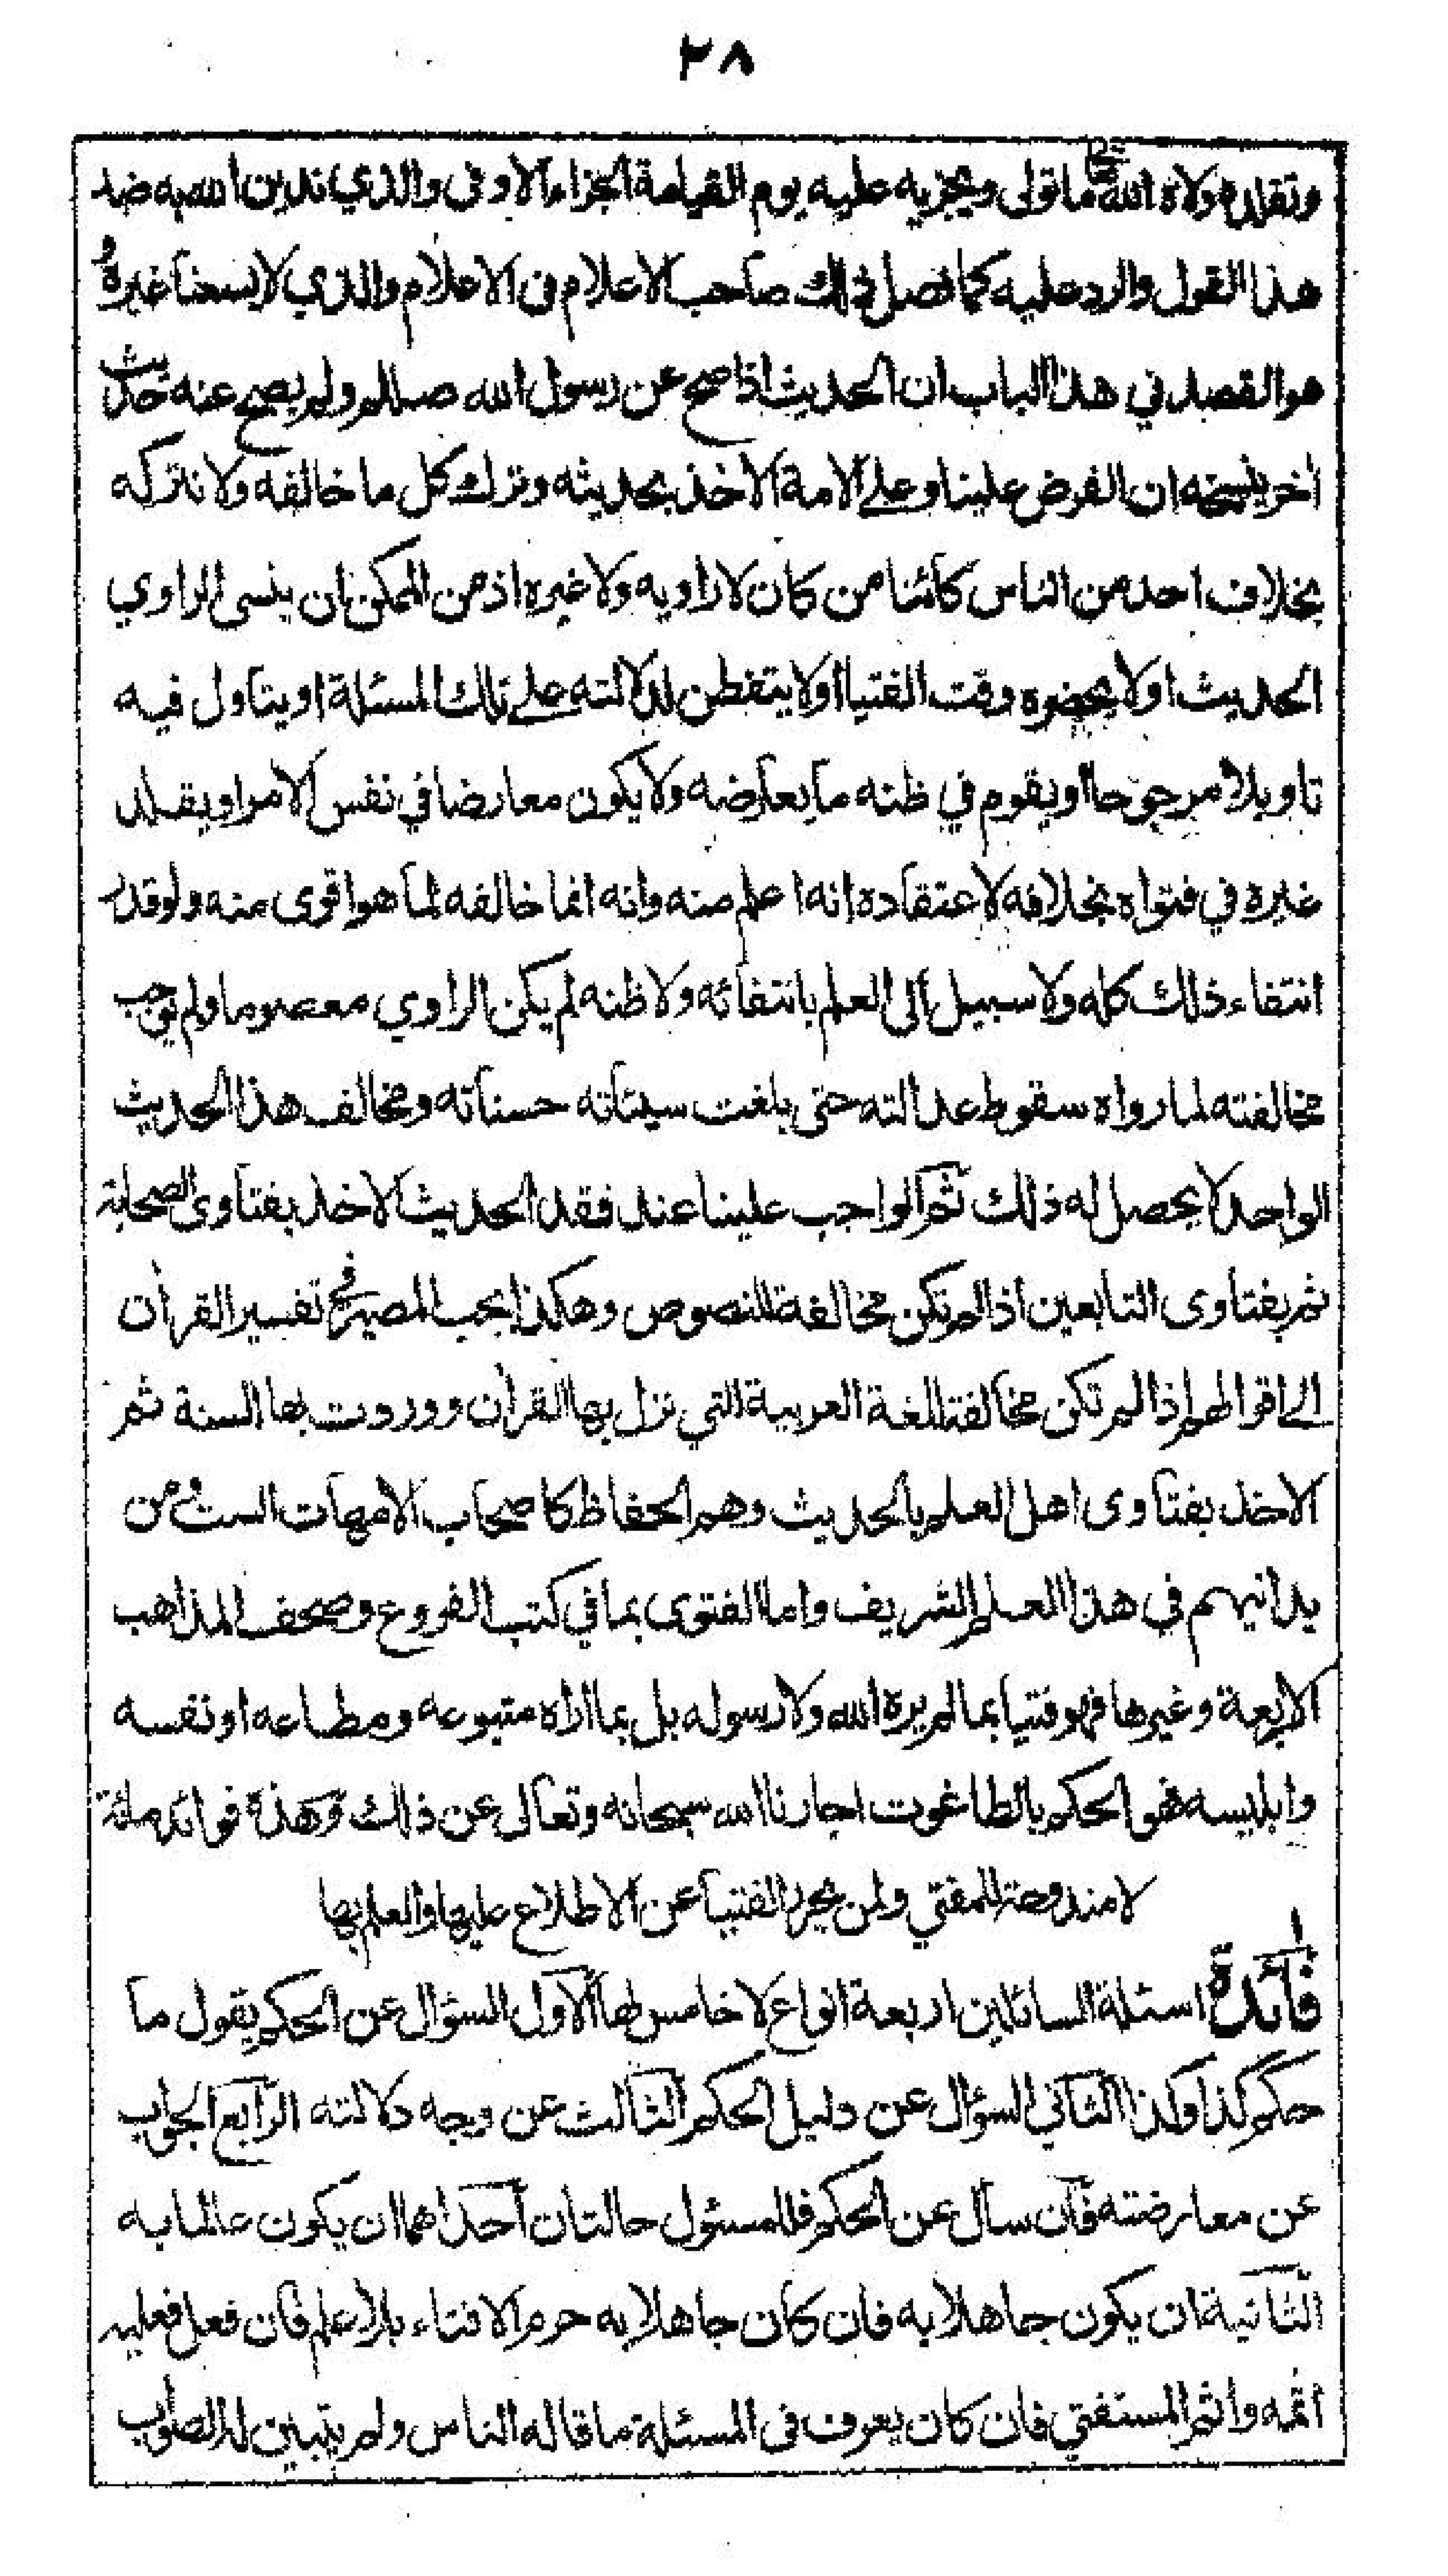 ٢٨
وتقلده ولاه الله ما تولى ويجزيه عليه يوم القيامة الجزاء الاوفى والذي ندين الله به ضد
هذا القول والرد عليه كما فصل ذلك صاحب الاعلام في الاعلام والذي لا يسعنا غيره و
هو القصد في هذا الباب ان الحديث اذا صح عن رسول الله صللم ولم يصح عنه حديث
اخر ينسخه ان الفرض علينا وعلى الامة الاخذ بحديثه وترك كل ما خالفه ولا نتركه
بخلاف احد من الناس كائنا من كان لا راويه ولا غيره اذ من الممكن ان ينسى الراوي
الحديث او لا يحضره وقت الفتيا او لا يتفطن لدلالته على تلك المسئلة او يتاول فيه
تاويلا مرجوحا او يقوم في ظنه ما يعارضه ولا يكون معارضا في نفس الامر او يقلد
غيره في فتواه بخلافه لاعتقاده انه اعلم منه وانه انما خالفه لما هو اقوى منه ولو قدر
انتفاء ذلك كله ولا سبيل الى العلم بانتفائه ولا ظنه لم يكن الراوي معصوما ولم توجب
مخالفته لما رواه سقوط عدالته حتى بلغت سيئاته حسناته ومخالف هذا الحديث
الواحد لا يحصل له ذلك ثم الواجب علينا عند فقد الحديث الاخذ بفتاوى الصحابة
ثم بفتاوى التابعين اذا لم تكن مخالفة للنصوص وهكذا يجب المصير في تفسير القرأن
الى اقوالهم اذا لم تكن مخالفة للغة العربية التي نزل بها القرأن ووردت بها السنة ثم
الاخذ بفتاوى اهل العلم بالحديث وهم الحفاظ كاصحاب الامهات الست و من
يدانيهم في هذا العلم الشريف واما الفتوى بما في كتب الفروع وصحف المذاهب
الاربعة وغيرها فهو فتيا بما لم يره الله ولا رسوله بل بما اراه متبوعه ومطاعه او نفسه
وابليسه فهو الحكم بالطاغوت اجارنا الله سبحانه وتعالى عن ذلك وهذه فوائد مائة
لا مندوحة للمفتي ولمن يحرر الفتيا عن الاطلاع عليها والعلم بها
فائدة اسئلة السائلين اربعة انواع لا خامس لها الاول السؤال عن الحكم يقول ما
حكم كذا وكذا الثاني السؤال عن دليل الحكم الثالث عن وجه دلالته الرابع الجواب
عن معارضته فان سأل عن الحكم فللمسئول حالتان احداهما ان يكون عالما به
الثانية ان يكون جاهلا به فان كان جاهلا به حرم الافتاء بلا علم فان فعل فعليه
اثمه واثم المستفتي فان كان يعرف في المسئلة ما قاله الناس ولم يتبين له الصواب